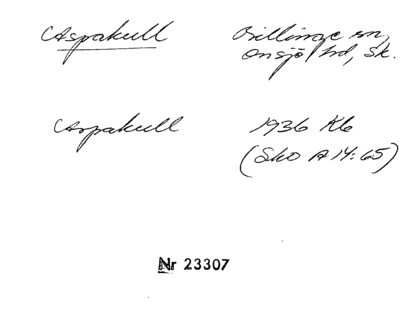 Aspakull
Billinge sn,
Onsjö hd, Sk.
Aspakull
1936 Kb
(Sko A 14:65)
Nr 23307